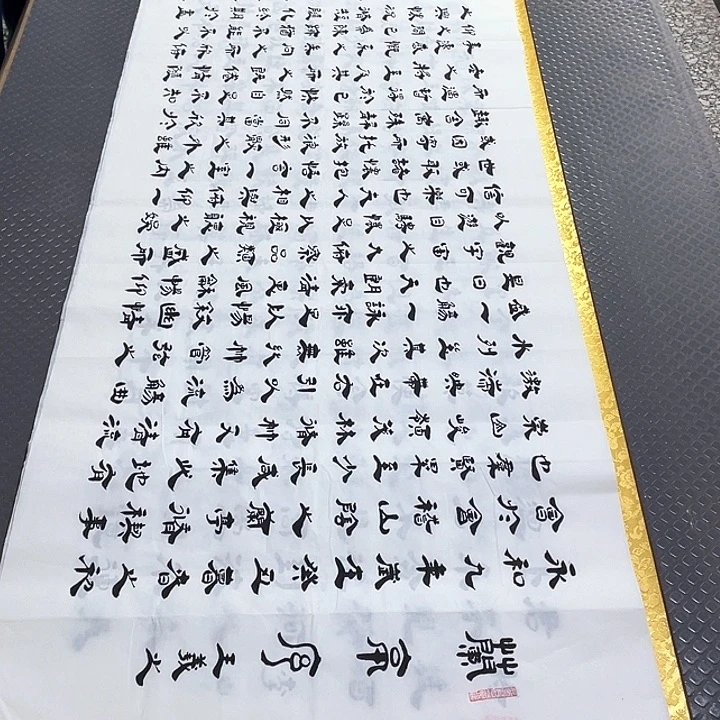 蘭亭序
王羲之
永和九年歲在癸丑暮春之初
會於會稽山陰之蘭亭脩禊事
也群賢畢至少長咸集此地有
崇山峻領茂林脩竹又有清流
激湍映帶左右引以為流觴曲
水列坐其次雖無絲竹管弦之
盛一觴一詠亦足以暢敘幽情
是日也天朗氣清惠風和暢仰
觀宇宙之大俯察品類之盛所
以遊目騁懷足以極視聽之娛
信可樂也夫人之相與俯仰一
世或取諸懷抱悟言一室之內
或因寄所託放浪形骸之外雖
趣舍萬殊靜躁不同當其欣於
所遇暫得於己快然自足不知
老之將至及其所之既惓情隨
事遷感慨係之矣向之所欣俛